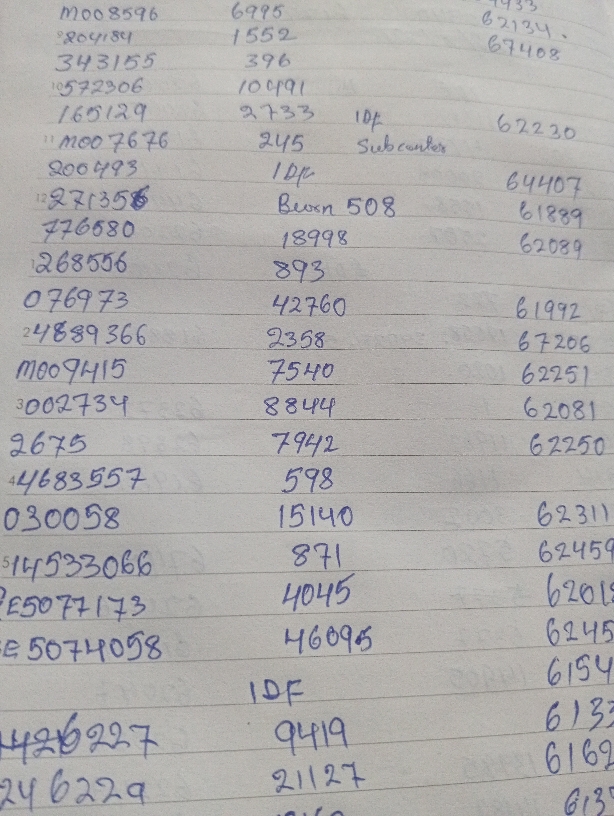 M008596 6995
62134.
204184 1552 67408
343155 396
572306 10491
165129 2733 IDF 62230
M007676 245
200493 IDF 64407
271356 508 61889
776580 18998 62089
268556 893
076973 42760 61992
24889366 2358 67206
M009415 7540 62251
3002734 8844 62081
2675 7942 62250
44683557 598
030058 15140 62311
514533066 871 62459
E5077173 4045
E5074058 46095
IDF
9419
246229 21127